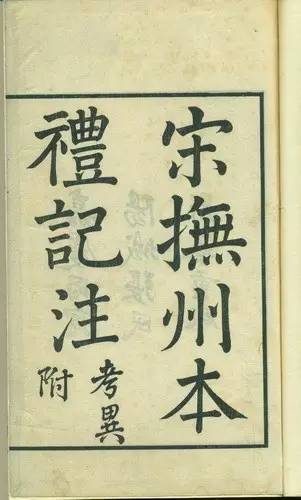 宋撫州本
禮記注
考異
附